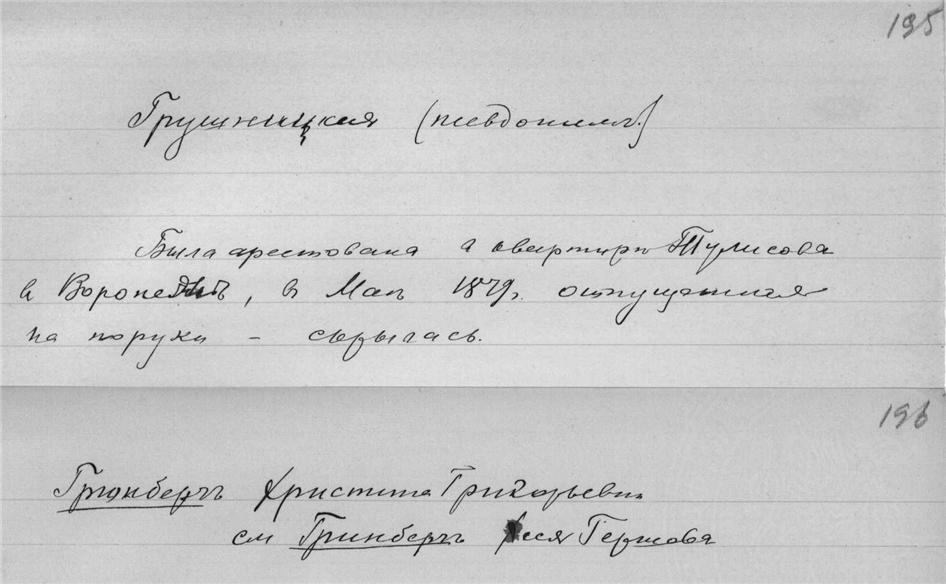 195
Грушницкая (псевдонимъ.)
Была арестована в квартирѣ Тулисова
въ Воронежѣ, въ Маѣ 1879г. отпущенная
на поруки – скрылась.
196
Гринбергъ Христина Григорьевна
см Гринбергъ Гершова